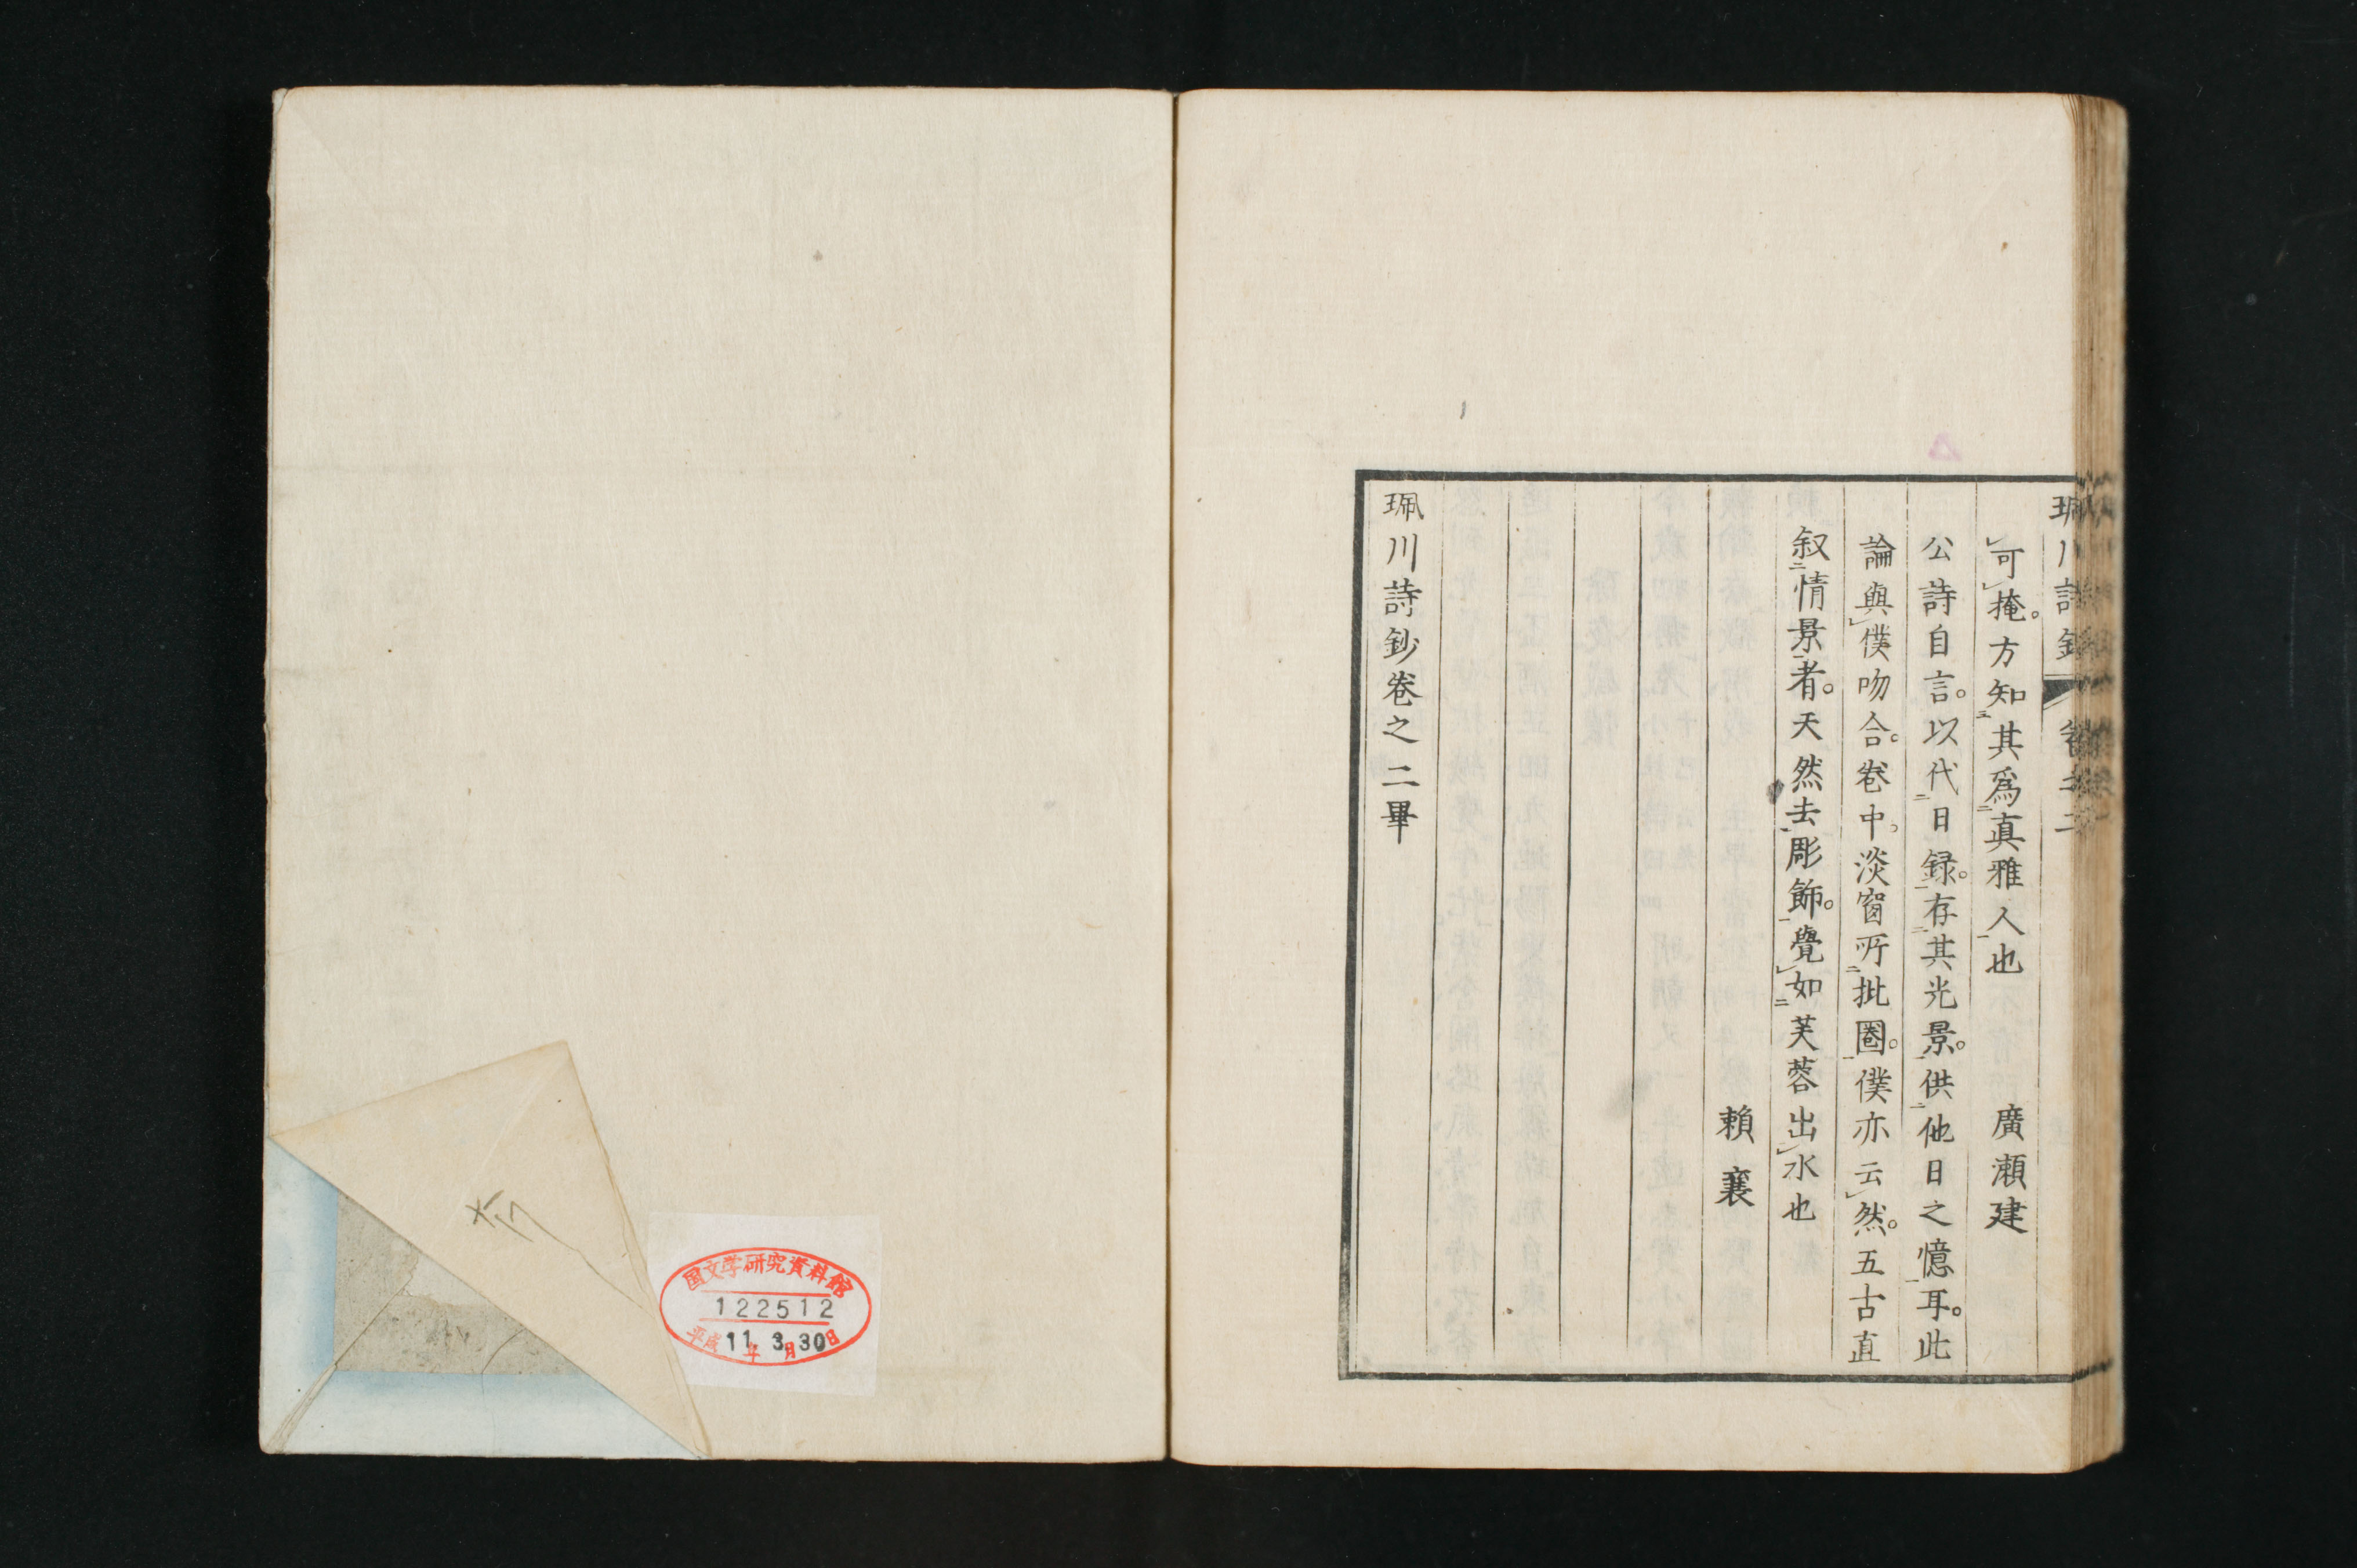 可掩。方知其爲真雅人也　廣瀬建
公詩自言。以代日録。存其光景。供他日之憶耳。此
論與僕吻合。卷中。淡窗所批圈。僕亦云然。五古直
叙情景者。天然去彫飾。覺如芙蓉出水也
賴襄
珮川詩鈔卷之二畢
国文学研究資料館
122512
平成11年3月30日